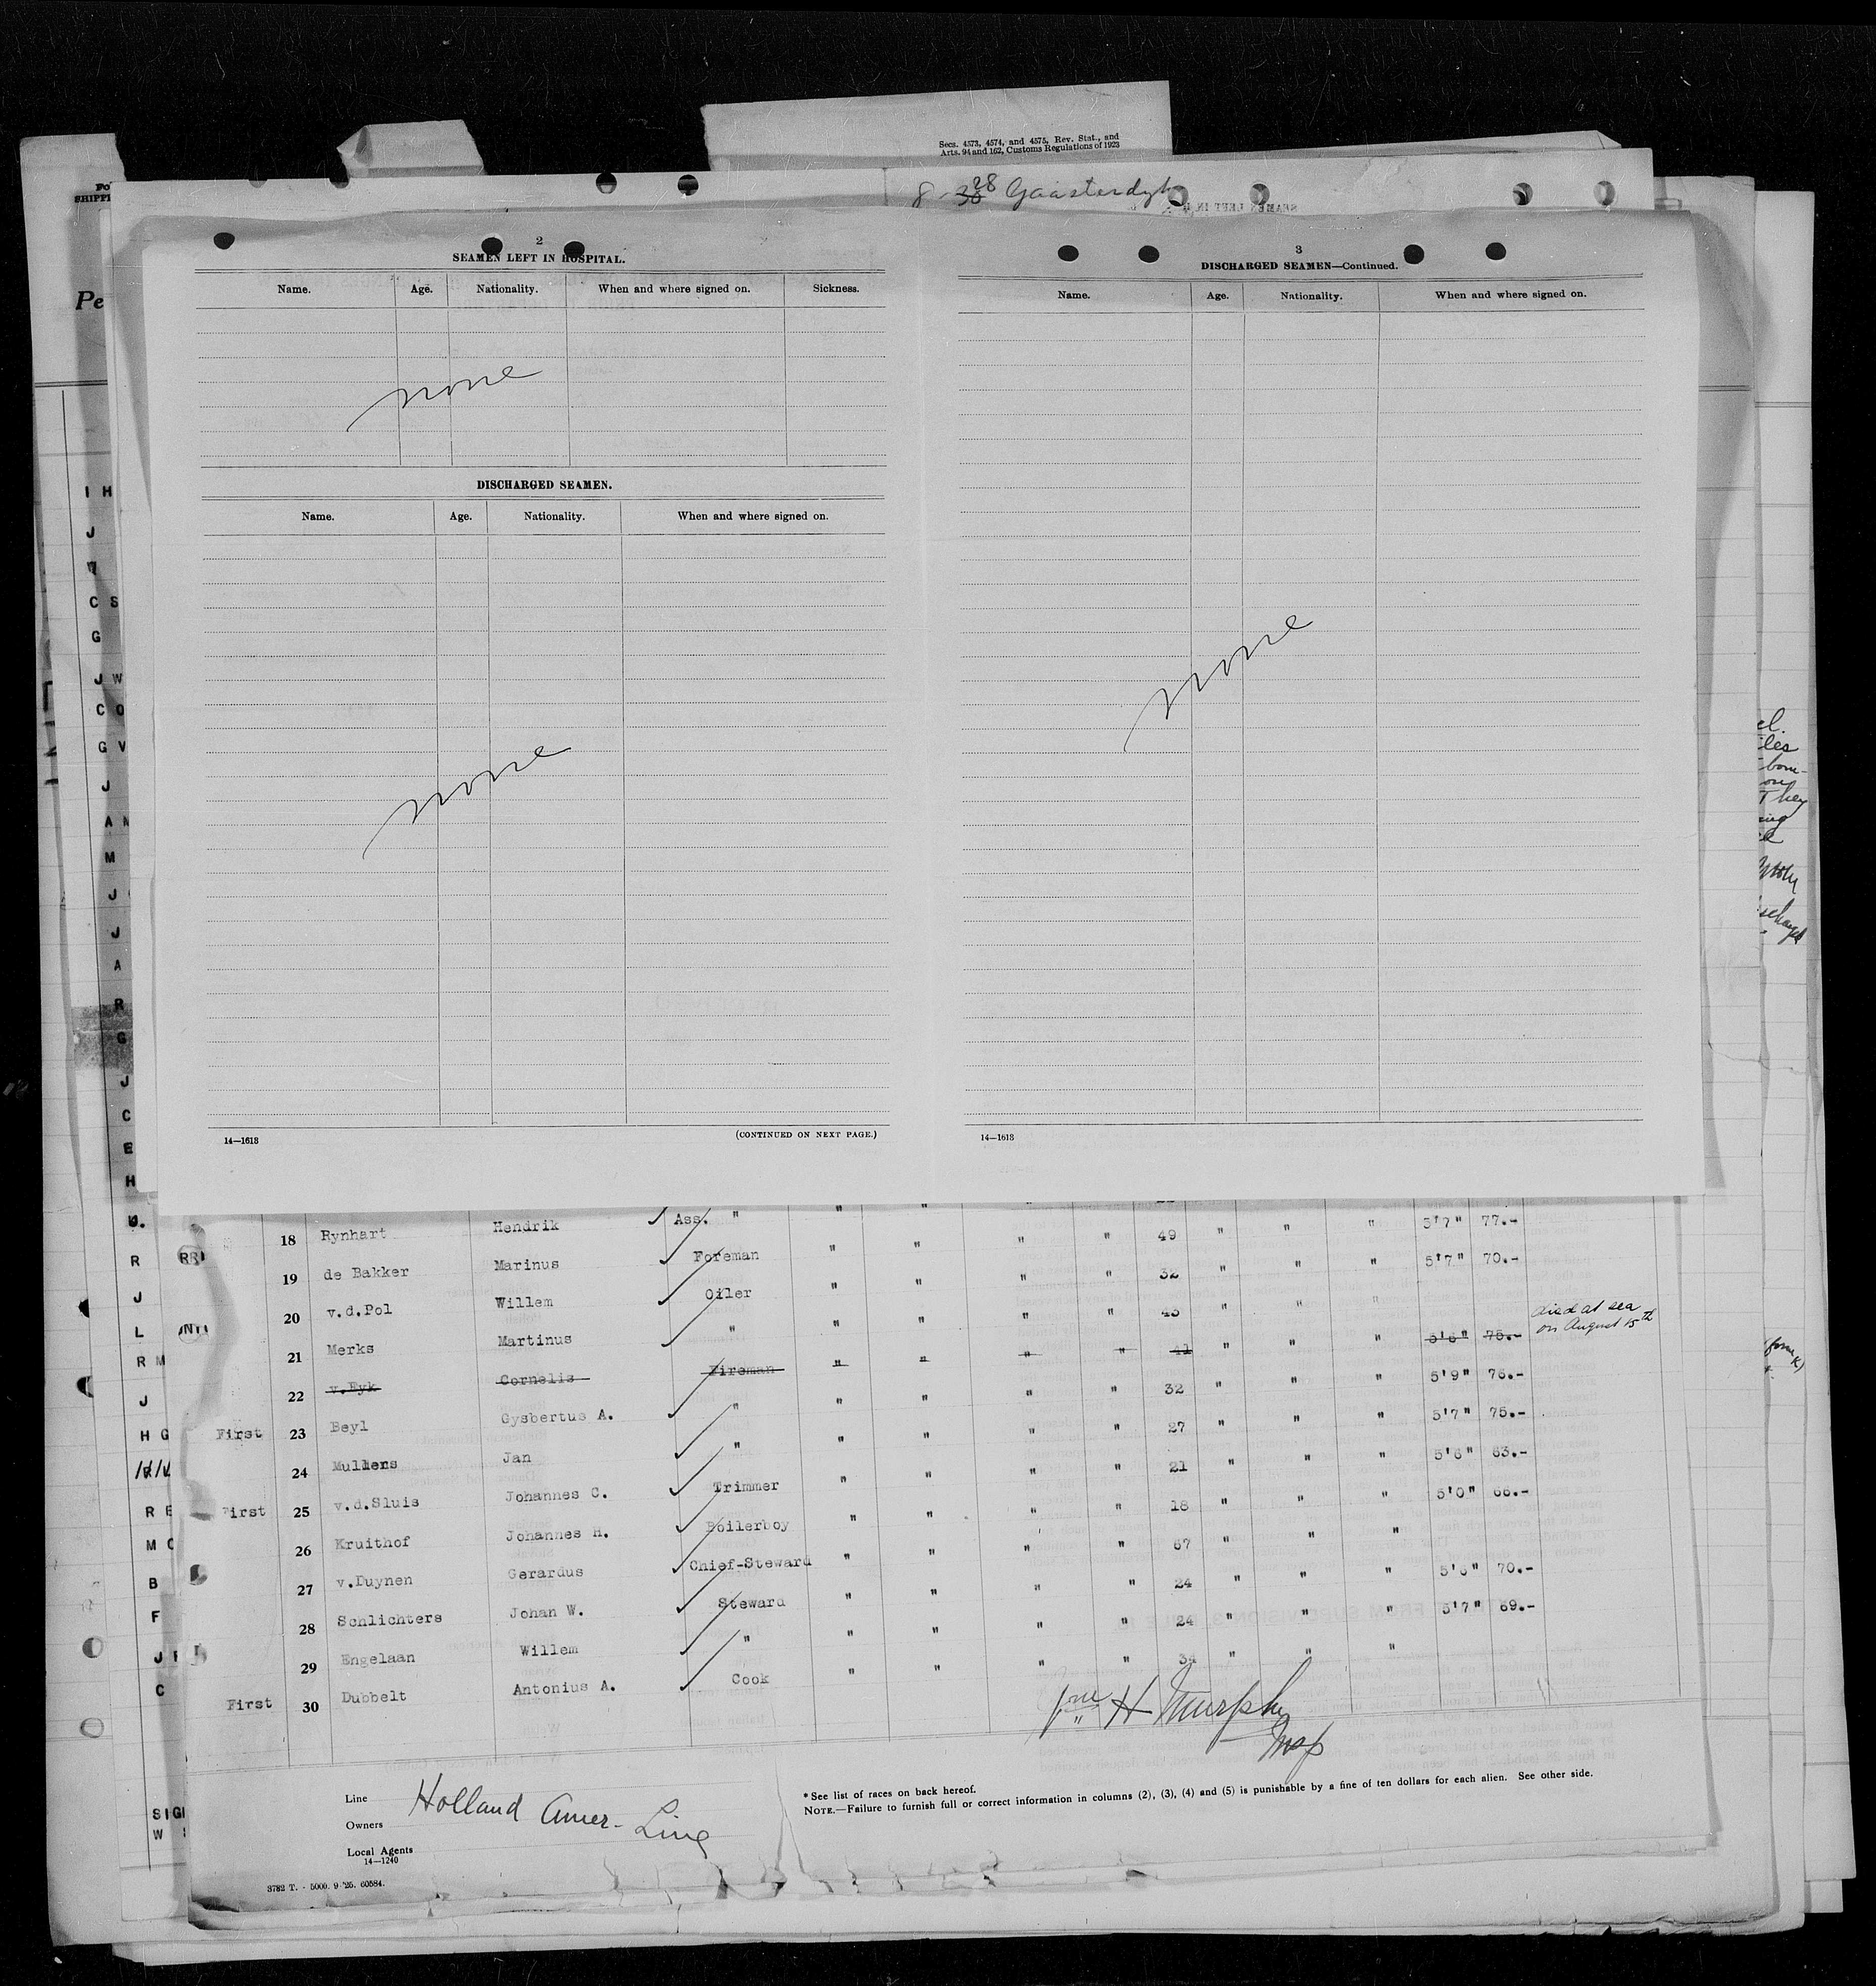 Secs. 4573, 4574, and 4575, Rev. Stat., and
Arts. 94 and 162, Customs Regulations of 1923
8-38 28 Gaasterdyk
2
SEAMEN LEFT IN HOSPITAL.
Name. Age. Nationality. When and where signed on. Sickness.
none
DISCHARGED SEAMEN.
Name. Age. Nationality. When and where signed on.
none
14—1613
(CONTINUED ON NEXT PAGE.)
3
DISCHARGED SEAMEN—Continued.
Name. Age. Nationality. When and where signed on.
none
14—1613
18 Rynhart Hendrik Ass. " " " 5'7" 77.-
19 de Bakker Marinus Foreman " " " " 49 " " " 5'7" 70.-
20 v.d.Pol Willem Oiler " " " " 32 " " "
21 Merks Martinus " " " " " 43 " " "
22 v.Eyk Cornelis Fireman " " " " 41 " " " 5'6" 75.- died at sea
on August 15th
23 First Beyl Gysbertus A. " " " " " 32 " " " 5'9" 75.-
24 Mullens Jan " " " " " 27 " " " 5'7" 75.-
First 25 v.d.Sluis Johannes C. Trimmer " " " " 21 " " " 5'6" 63.-
26 Kruithof Johannes H. Boilerboy " " " " 18 " " " 5'0" 66.-
27 v.Duynen Gerardus Chief-Steward " " " " 67 " " "
28 Schlichters Johan W. Steward " " " " 24 " " " 5'6" 70.-
29 Engelaan Willem " " " " " 24 " " " 5'7" 69.-
First 30 Dubbelt Antonius A. Cook " " " " 34 " " "
H Murphy
Insp
Line
Owners Holland Amer. Line
Local Agents
14—1240
3782 T. - 5000. 9 '25. 60584.
* See list of races on back hereof.
NOTE.—Failure to furnish full or correct information in columns (2), (3), (4) and (5) is punishable by a fine of ten dollars for each alien. See other side.